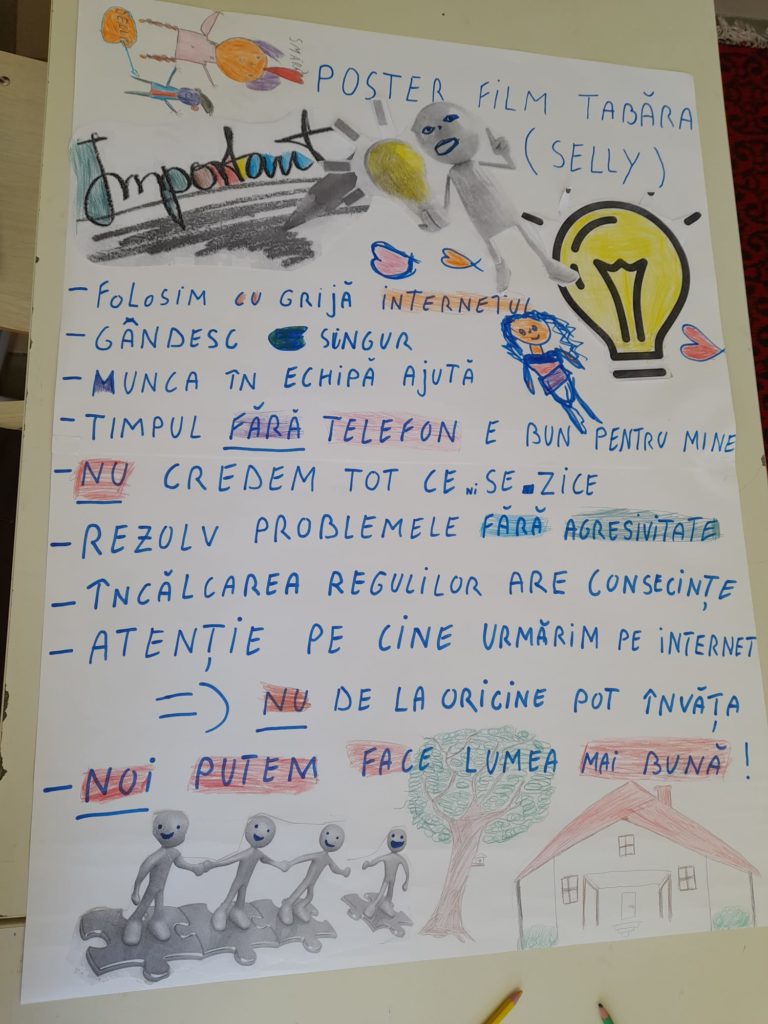 POSTER FILM TABĂRA
(SELLY)
Important
- FOLOSIM CU GRIJĂ INTERNETUL
- GÂNDESC SINGUR
- MUNCA ÎN ECHIPĂ AJUTĂ
- TIMPUL FĂRĂ TELEFON E BUN PENTRU MINE
- NU CREDEM TOT CE NI SE ZICE
- REZOLV PROBLEMELE FĂRĂ AGRESIVITATE
- ÎNCĂLCAREA REGULILOR ARE CONSECINȚE
- ATENȚIE PE CINE URMĂRIM PE INTERNET
=> NU DE LA ORICINE POT ÎNVĂȚA
- NOI PUTEM FACE LUMEA MAI BUNĂ!